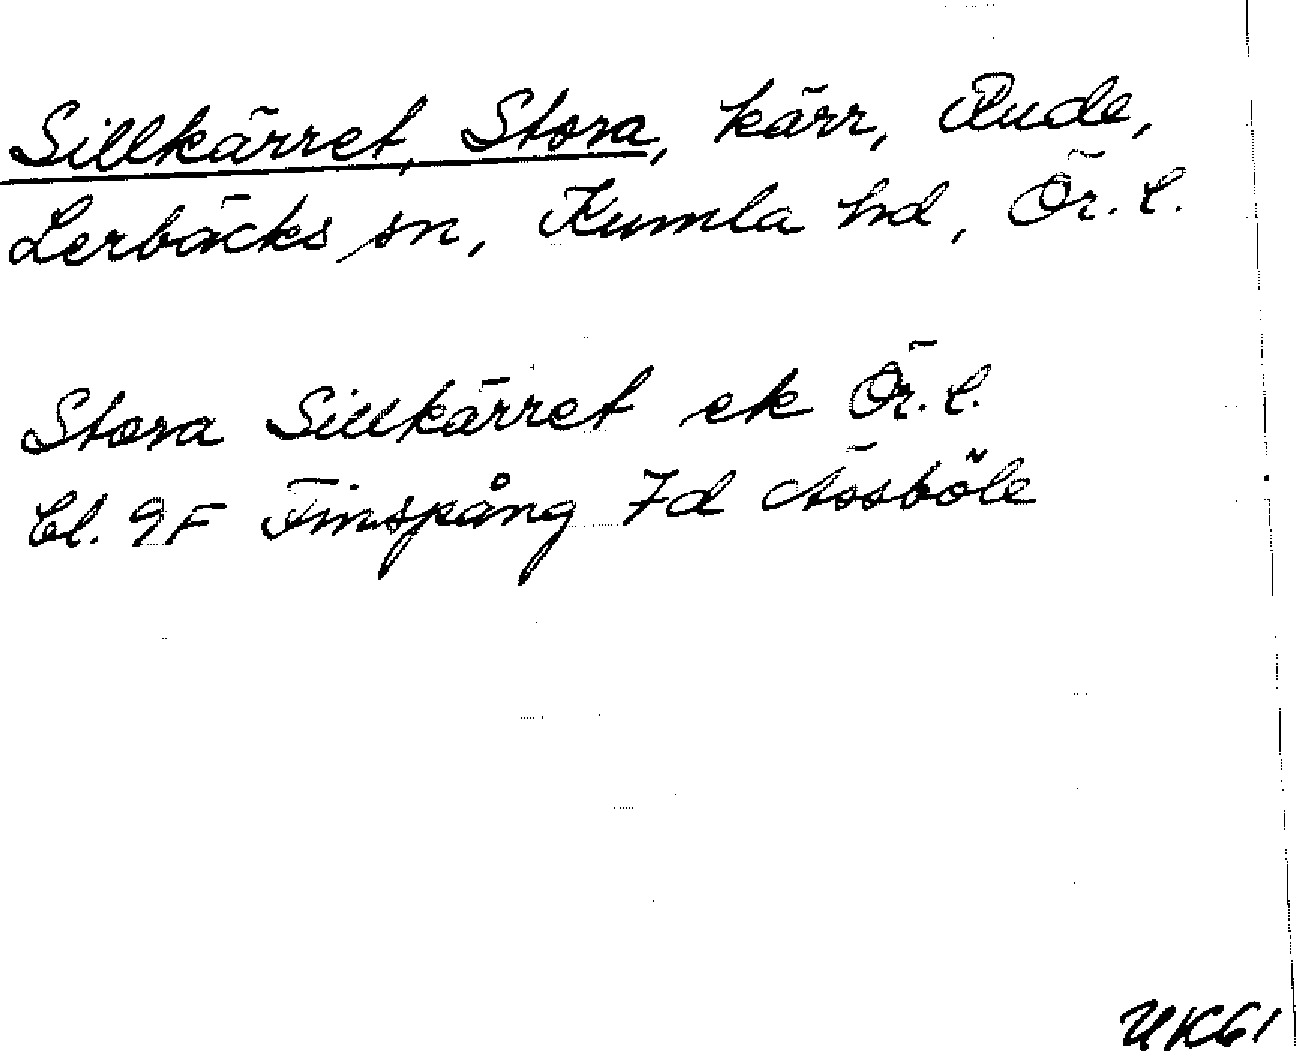 Sillkärret, Stora, kärr, Rude,
Lerbäcks sn, Kumla hd, Ör. l.
Stora Sillkärret ek Ör. l.
bl. 9F Finspång 7d Åssböle
UK61